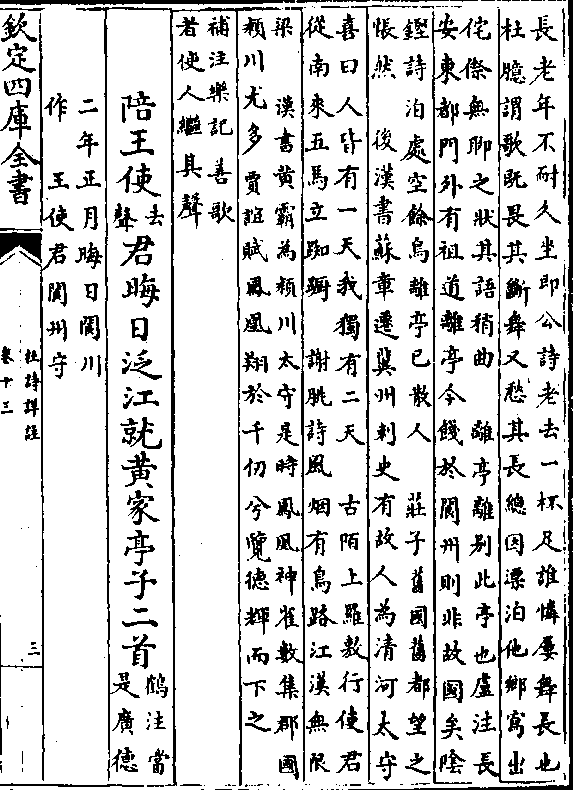 長老年不耐久坐即公詩老去一杯足誰憐屢舞長也
杜臆謂歌既畏其斷舞又愁其長總因漂泊他鄉寫出
侘傺無聊之狀其語稍曲　離亭離别此亭也盧注長
安東都門外有祖道離亭今餞於閬州則非故國矣陰
鏗詩泊處空餘鳥離亭已散人　莊子舊國舊都望之
悵然　後漢書蘇章遷冀州刺史有故人為清河太守
喜曰人皆有一天我獨有二天　古陌上羅敷行使君
從南來五馬立踟蹰　謝朓詩風烟有鳥路江漢無限
梁　漢書黄霸為潁川太守是時鳳凰神雀數集郡國
潁川尤多賈誼賦鳳凰翔於千仞兮覽德輝而下之
補注樂記善歌
者使人繼其聲
陪王使去聲君晦日泛江就黄家亭子二首鶴注當
是廣德
二年正月晦日閬川
作　王使君閬州守
欽定四庫全書
杜詩詳註
卷十三
三